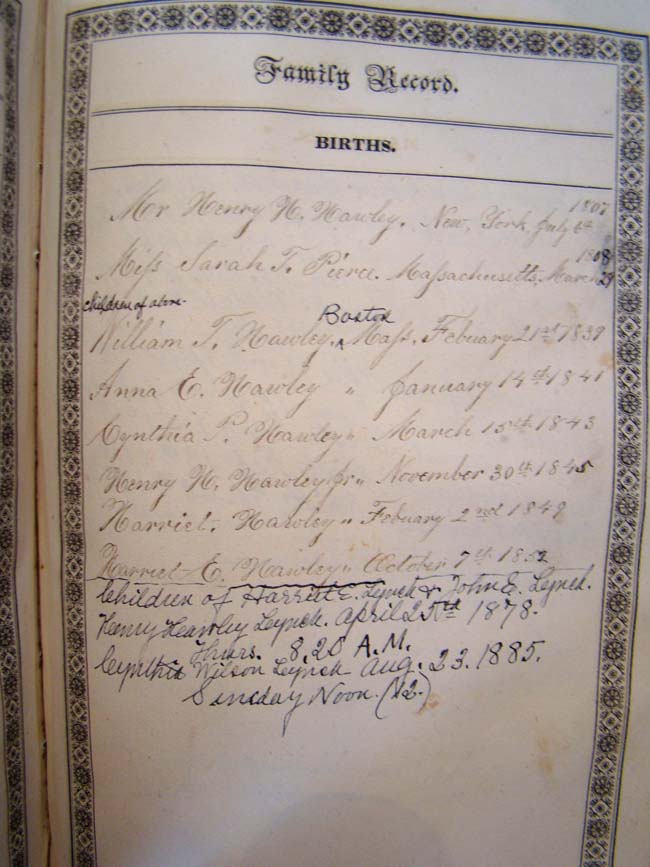 Family Record.
BIRTHS.
Mr Henry H. Hawley. New York, July 6th 1807
Miss Sarah T. Pierce. Massachusetts, March 29 1808
children of above-
William T. Hawley. Boston Mass. Febuary 21st 1839
Anna E. Hawley " January 14th 1841
Cynthia P. Hawley " March 15th 1843
Henry H. Hawley Jr " November 30th 1845
Harriet. Hawley " Febuary 2nd 1849
Harriet E. Hawley " October 7th 1852
Children of Harriet E. Lynch & John E. Lynch.
Henry Hawley Lynch. April 25th 1878.
Thurs. 8.20 A.M.
Cynthia Wilson Lynch Aug. 23. 1885.
Sunday Noon. (12.)